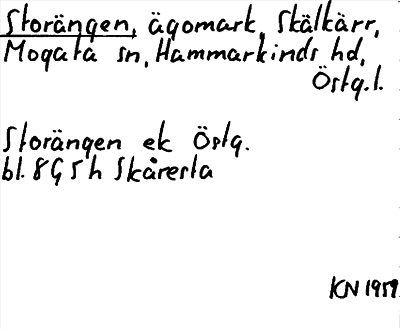 Storängen, ägomark, Skälkärr,
Mogata sn, Hammarkinds hd,
Östg.l.
Storängen ek Östg.
bl. 8G 5h Skårerta
KN 1959